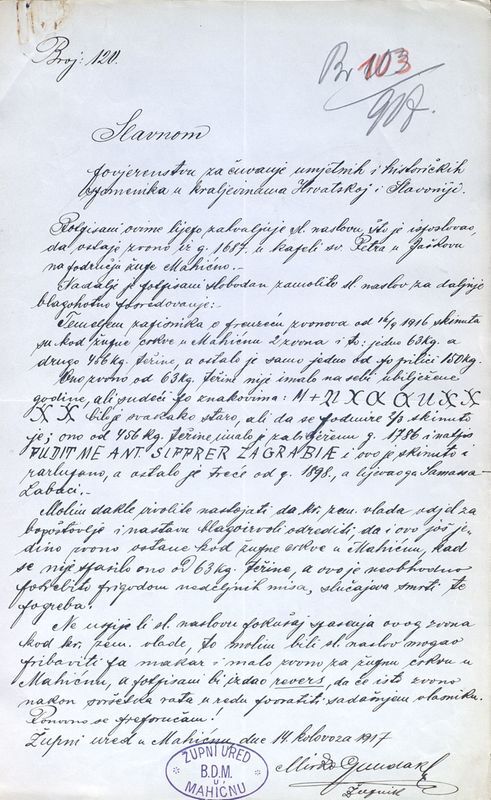 Broj: 120.
Br 103
917.
Slavnom
povjerenstvu za čuvanje umjetnih i historičkih
spomenika u kraljevinama Hrvatskoj i Slavoniji.
Potpisani ovime lijepo zahvaljuje sl. naslovu, što je isposlovao,
da ostaje zvono iz g. 1687. u kapeli sv. Petra u Jaškovu
na području župe Mahično.-
Nadalje je potpisani slobodan zamoliti sl. naslov za daljnje
blagohotno posredovanje:-
Temeljem zapisnika o preuzeću zvonova od 16/9 1916 skinuta
su kod župne crkve u Mahičnu 2 zvona i to: jedno 63 kg. a
drugo 456 kg. težine, a ostalo je samo jedno od po prilici 150 kg.
Ono zvono od 63 kg. težine nije imalo na sebi ubilježene
godine, ali sudeći po znakovima: M +
bilo je svakako staro, ali da se podmire 2/3 skinuto
je; ono od 456 kg. težine imalo je zabilježenu g. 1786 i natpis
FUDIT ME ANT. SIPPRER ZAGRABIÆ i ovo je skinuto i
razlupano, a ostalo je treće od g. 1898., a lijevaoga Samassa-
Labaci.-
Molim dakle izvoliti nastojati da kr. zem. vlada odjel za
bogoštovlje i nastavu blagoizvoli odrediti, da i ovo još je-
dino zvono ostane kod župne crkve u Mahičnu, kad
se nije spasilo ono od 63 kg. težine, a ovo je neobhodno
potrebito prigodom nedeljnih misa, slučajeva smrti te
pogreba.
Ne uspije li sl. naslovu pokušaj spasenja ovog zvona
kod kr. zem. vlade, to molim bi li sl. naslov mogao
pribaviti pa makar i malo zvono za župnu crkvu u
Mahičnu, a potpisani bi izdao revers, da će isto zvono
nakon svršetka rata u redu povratiti sadašnjem vlasniku.
Ponovno se preporučam!
Župni ured u Mahičnu, dne 14. kolovoza 1917
ŽUPNI URED
B.D.M.
u
MAHIČNU
Mirko
župnik